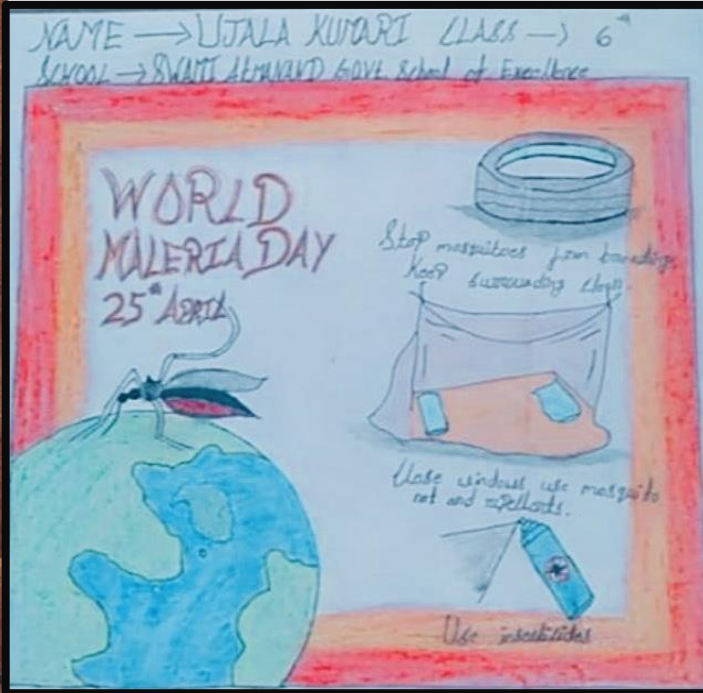 NAME → UJALA KUMARI CLASS → 6th
SCHOOL → SWAMI ATMANAND GOVT. School of Excellence
WORLD
MALERIA DAY
25th APRIL
Stop mosquitoes from breeding.
Keep surrounding clean.
Close windows use mosquito
net and repellants.
Use insecticides